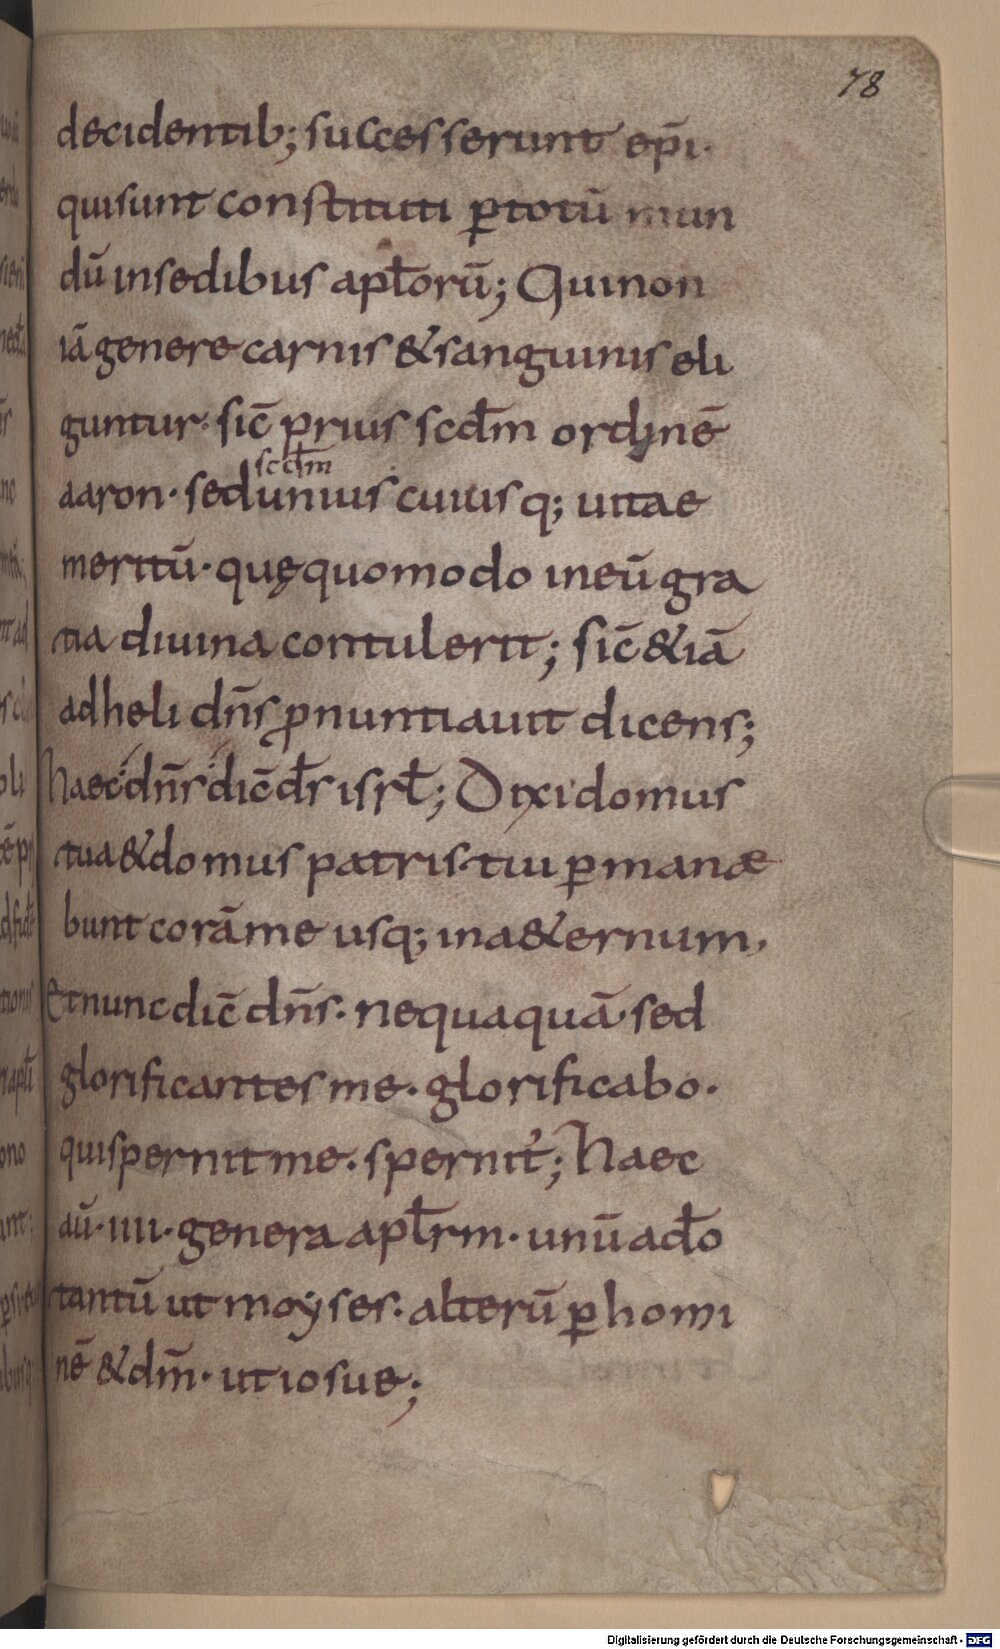 78
decidentib; successerunt ep̄i·
qui sunt constituti ꝑ totū mun
dū in sedibus apł̄orū; Qui non
iā genere carnis & sanguinis eli
guntur· sic̄ prius scdm̄ ordinē
scdm̄
aaron· sed unius cuiusq; uitae
meritū· quę quomodo in eū gra
tia diuina contulerit; sic̄ & iā
ad heli dn̄s ꝓnuntiauit dicens;
Haec dn̄s dic̄ d̄s isrł; Dixi domus
tua & domus patris tui ꝑmanæ
bunt corā me usq; in a&ernum,
Et nunc dic̄ dn̄s· nequaquā· sed
glorificantes me· glorificabo·
qui spernit me· spernit᷑; Haec
aū· iiii· genera apłrm· unū a d̄o
tantū ut moyses· alterū ꝑ homi
nē & dm̄· ut iosue;
Digitalisierung gefördert durch die Deutsche Forschungsgemeinschaft - DFG